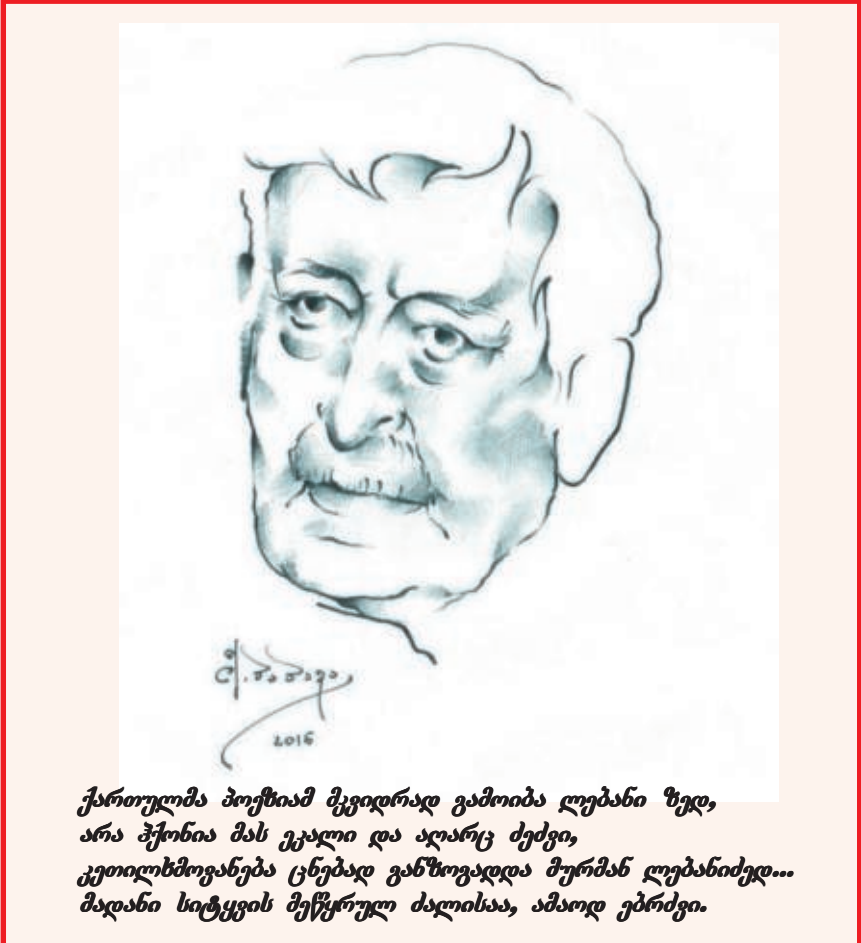 2016
ქართულმა პოეზიამ მკვიდრად გამოიბა ლებანი ზედ,
არა ჰქონია მას ეკალი და აღარც ძეძვი,
კეთილხმოვანება ცნებად განზოგადდა მურმან ლებანიძედ...
მადანი სიტყვის მეწყრულ ძალისაა, ამაოდ ებრძვი.